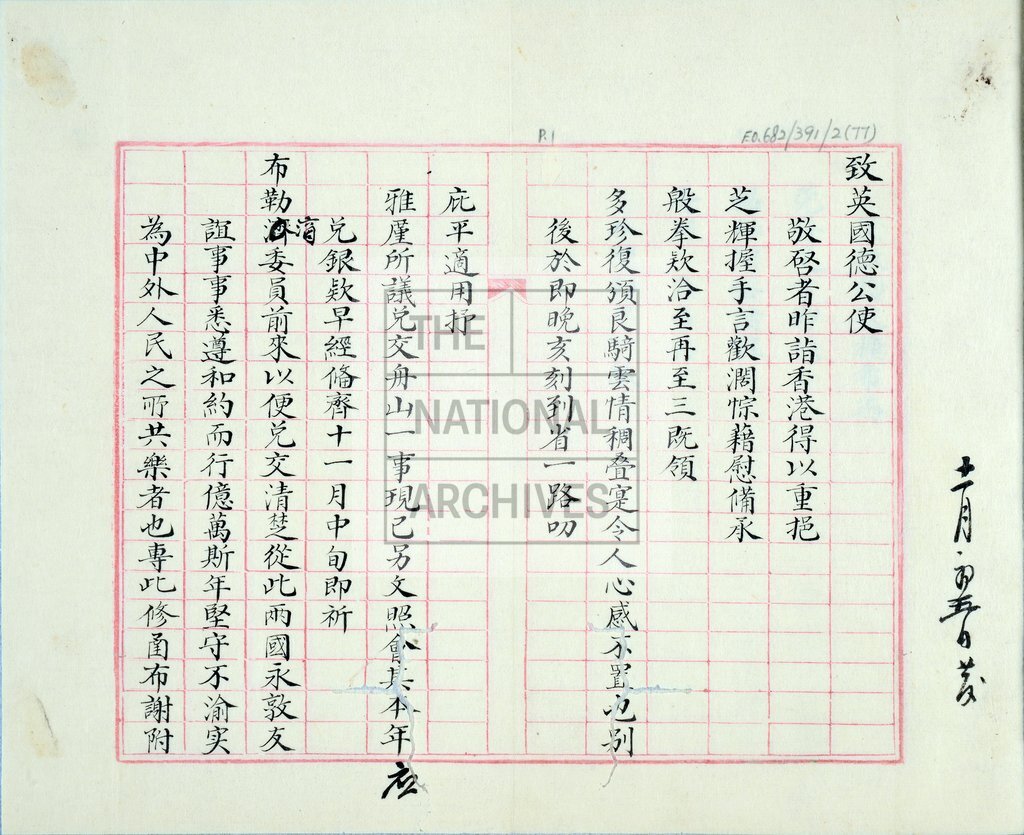 F.O.682/391/2(77)
P.1
致英國德公使
敬啓者昨詣香港得以重挹
芝輝握手言歡濶悰藉慰備承
般拳欵洽至再至三既領
多珍復頒良騎雲情稠叠寔令人心感不置也別
後於即晚亥刻到省一路叨
庇平適用抒
雅廑所議兌交舟山一事現已另文照會其本年應
兌銀欵早經俻齊十一月中旬即祈
布勒湏委員前來以便兌交清楚從此兩國永敦友
誼事事悉遵和約而行億萬斯年堅守不渝实
為中外人民之所共樂者也專此修函布謝附
十一月初五日發
THE
NATIONAL
ARCHIVES